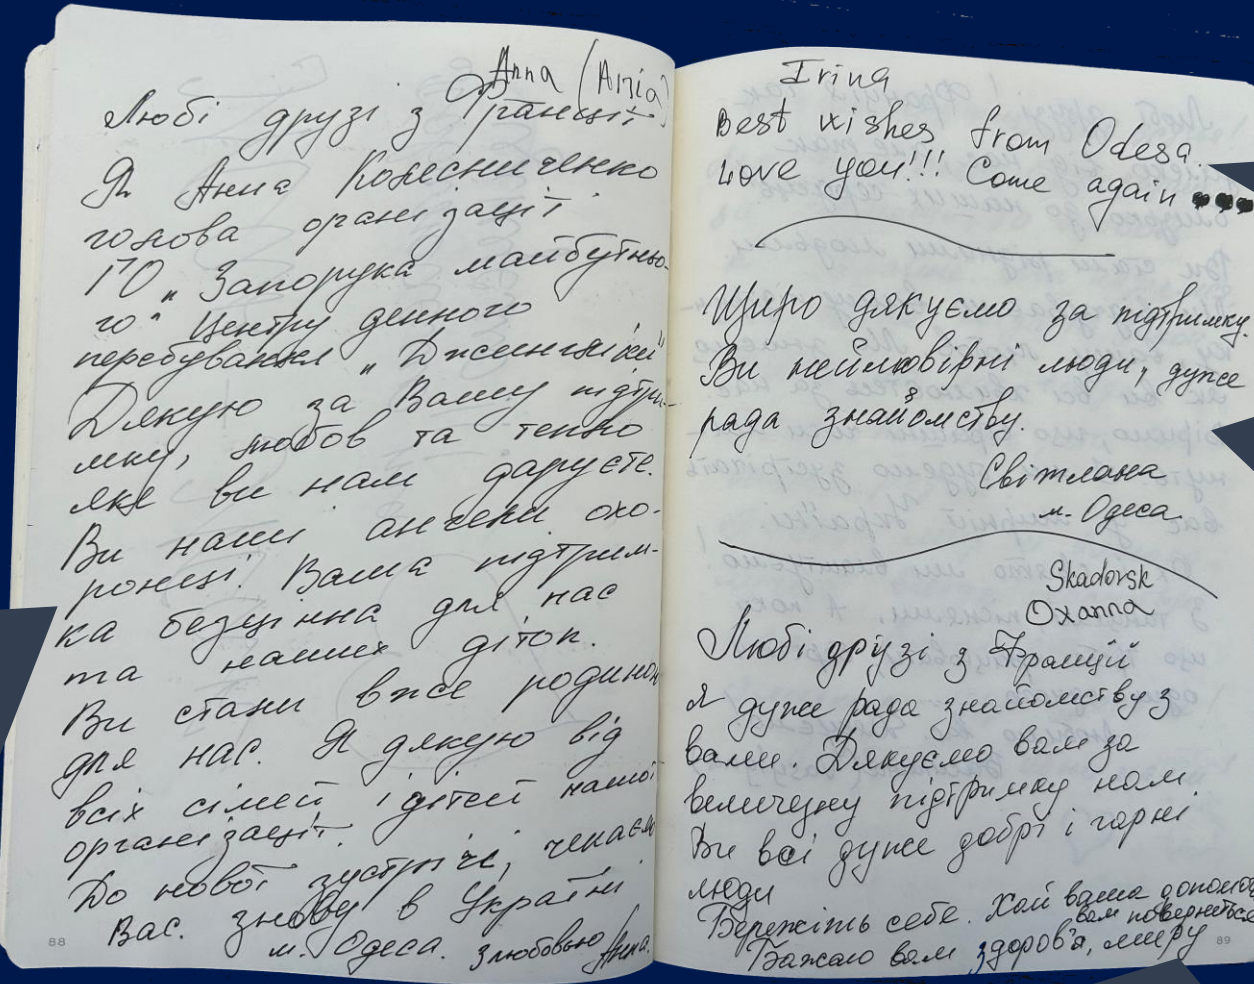 Anna (Азія)
Любі друзі з Франції
Я Анна Колесниченко
голова організації
ГО „Запорука майбутньо-
го" Центру денного
перебування „Дженціки"
Дякую за Вашу підтри-
мку, любов та тепло
яке ви нам даруєте.
Ви наші ангели охо-
ронці. Ваша підтрим-
ка безцінна для нас
та наших діток.
Ви стали вже родиною
для нас. Я дякую від
всіх сімей і дітей нашої
організації.
До нової зустрічі, чекаємо
Вас. знову в Україні
м. Одеса. З любовью Анна.
88
Irina
Best wishes from Odesa.
Love you!!! Come again
Щиро дякуємо за підтримку.
Ви неймовірні люди, дуже
рада знайомству.
Світлана
м. Одеса
Skadovsk
Oxanna
Любі друзі з Франції
Я дуже рада знайомству з
вами. Дякуємо вам за
величезну підтримку нам.
Ви всі дуже добрі і гарні
люди
Бережіть себе. Хай ваша допомога
вам повернеться
Бажаю вам здоров'я, миру
89